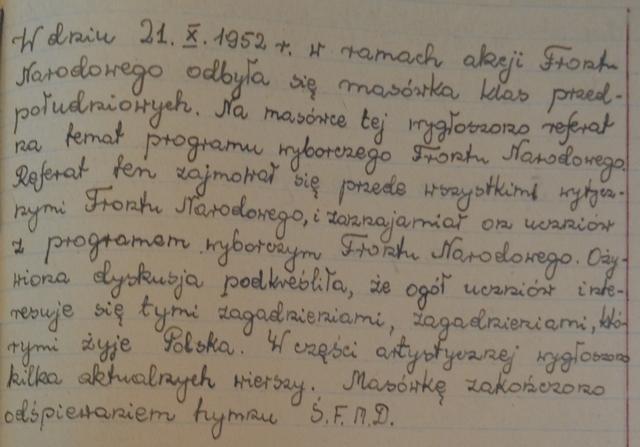 W dniu 21. X. 1952 r. w ramach akcji Frontu
Narodowego odbyła się masówka klas przed-
południowych. Na masówce tej wygłoszono referat
na temat programu wyborczego Frontu Narodowego.
Referat ten zajmował się przede wszystkim wytycz-
nymi Frontu Narodowego, i zaznajamiał on uczniów
z programem wyborczym Frontu Narodowego. Oży-
wiona dyskusja podkreśliła, że ogół uczniów inte-
resuje się tymi zagadnieniami, zagadnieniami, któ-
rymi żyje Polska. W części artystycznej wygłoszono
kilka aktualnych wierszy. Masówkę zakończono
odśpiewaniem hymnu Ś.F.M.D.